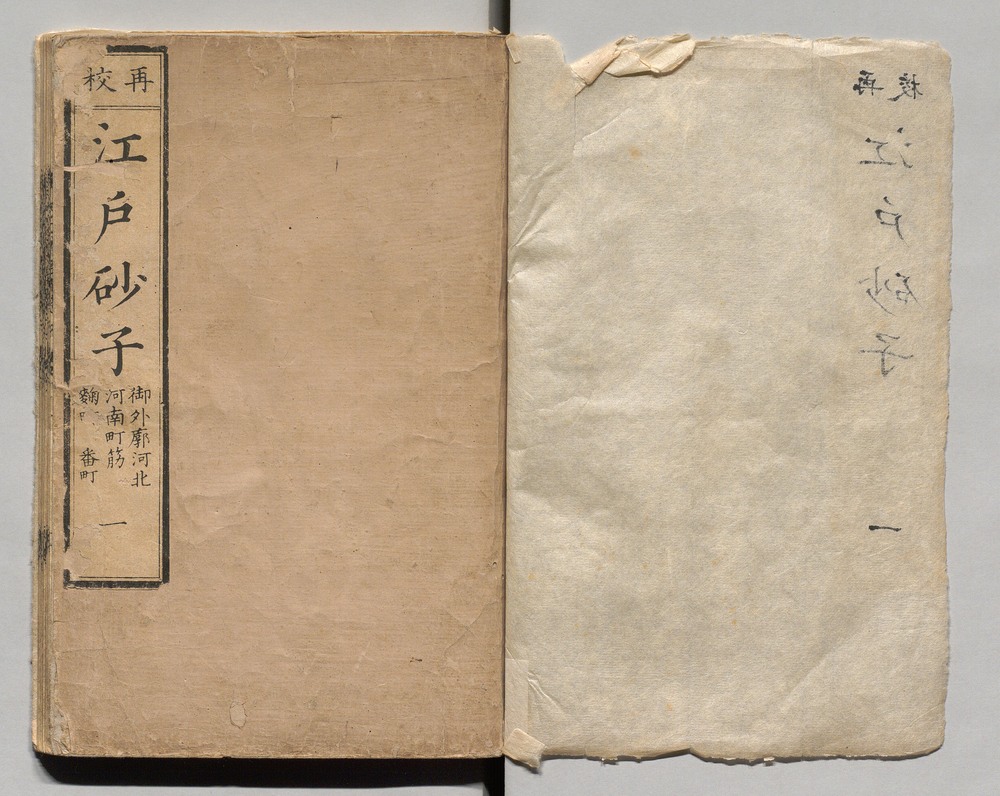 再校
江戸砂子
御外廓河北
河南町筋
麴町 番町
一
再校
江戸砂子
一